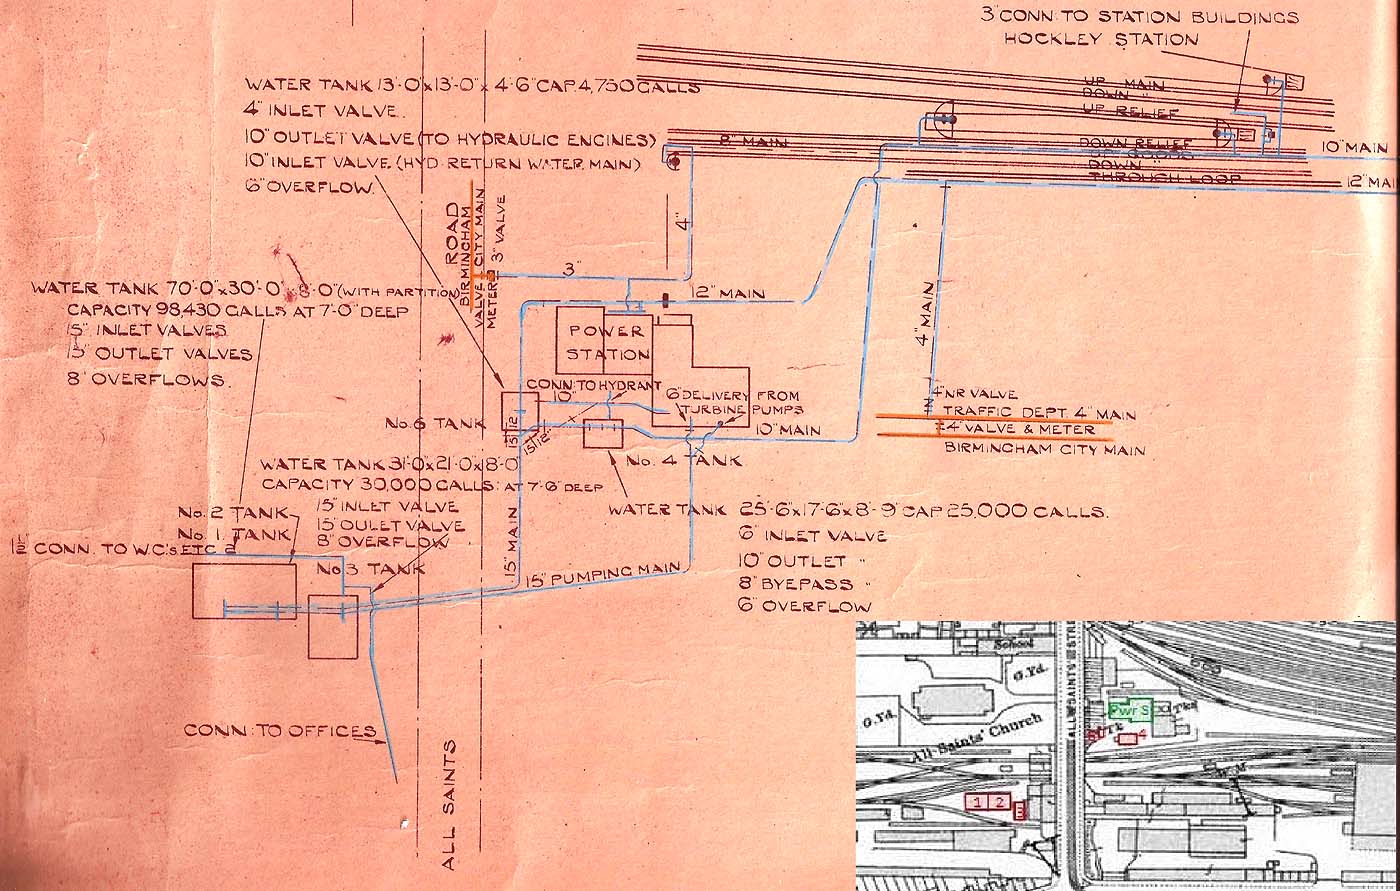 3" CONN: TO STATION BUILDINGS
HOCKLEY STATION
UP MAIN
DOWN "
UP RELIEF
DOWN RELIEF
DOWN
THROUGH LOOP
8" MAIN
10" MAIN
12" MAI
WATER TANK 13'-0"x13'-0"x 4'-6" CAP 4,750 GALLS
4" INLET VALVE.
10" OUTLET VALVE (TO HYDRAULIC ENGINES)
10" INLET VALVE (HYD RETURN WATER MAIN)
6" OVERFLOW.
ROAD
BIRMINGHAM
VALVE CITY MAIN
METER 3" VALVE
4"
3"
12" MAIN
WATER TANK 70'-0"x30'-0"x8'-0" (WITH PARTITION)
CAPACITY 98,430 GALLS AT 7'-0" DEEP
15" INLET VALVES
15" OUTLET VALVES
8" OVERFLOWS.
POWER
STATION
4" MAIN
CONN: TO HYDRANT
10"
6" DELIVERY FROM
TURBINE PUMPS
10" MAIN
4" NR VALVE
TRAFFIC DEPT. 4" MAIN
4" VALVE & METER
BIRMINGHAM CITY MAIN
No. 6 TANK
15" 12"
15" 12"
No. 4 TANK
WATER TANK 31'-0"x21'-0"x8'-0
CAPACITY 30,000 GALLS: AT 7'-6" DEEP
15" INLET VALVE
15" OULET VALVE
8" OVERFLOW
No. 2 TANK
No. 1. TANK
1½" CONN. TO W.C's ETC 2
No 3 TANK
15" MAIN
15" PUMPING MAIN
WATER TANK 25'-6"x17'-6"x8'-9" CAP 25,000 GALLS.
6" INLET VALVE
10" OUTLET "
8" BYEPASS "
6" OVERFLOW
CONN: TO OFFICES
ALL SAINTS
School
G.Yd.
G.Yd.
All Saints' Church
ALL SAINTS STRE
Pwr S
Tks
Tk
4
W.M
1 2
3